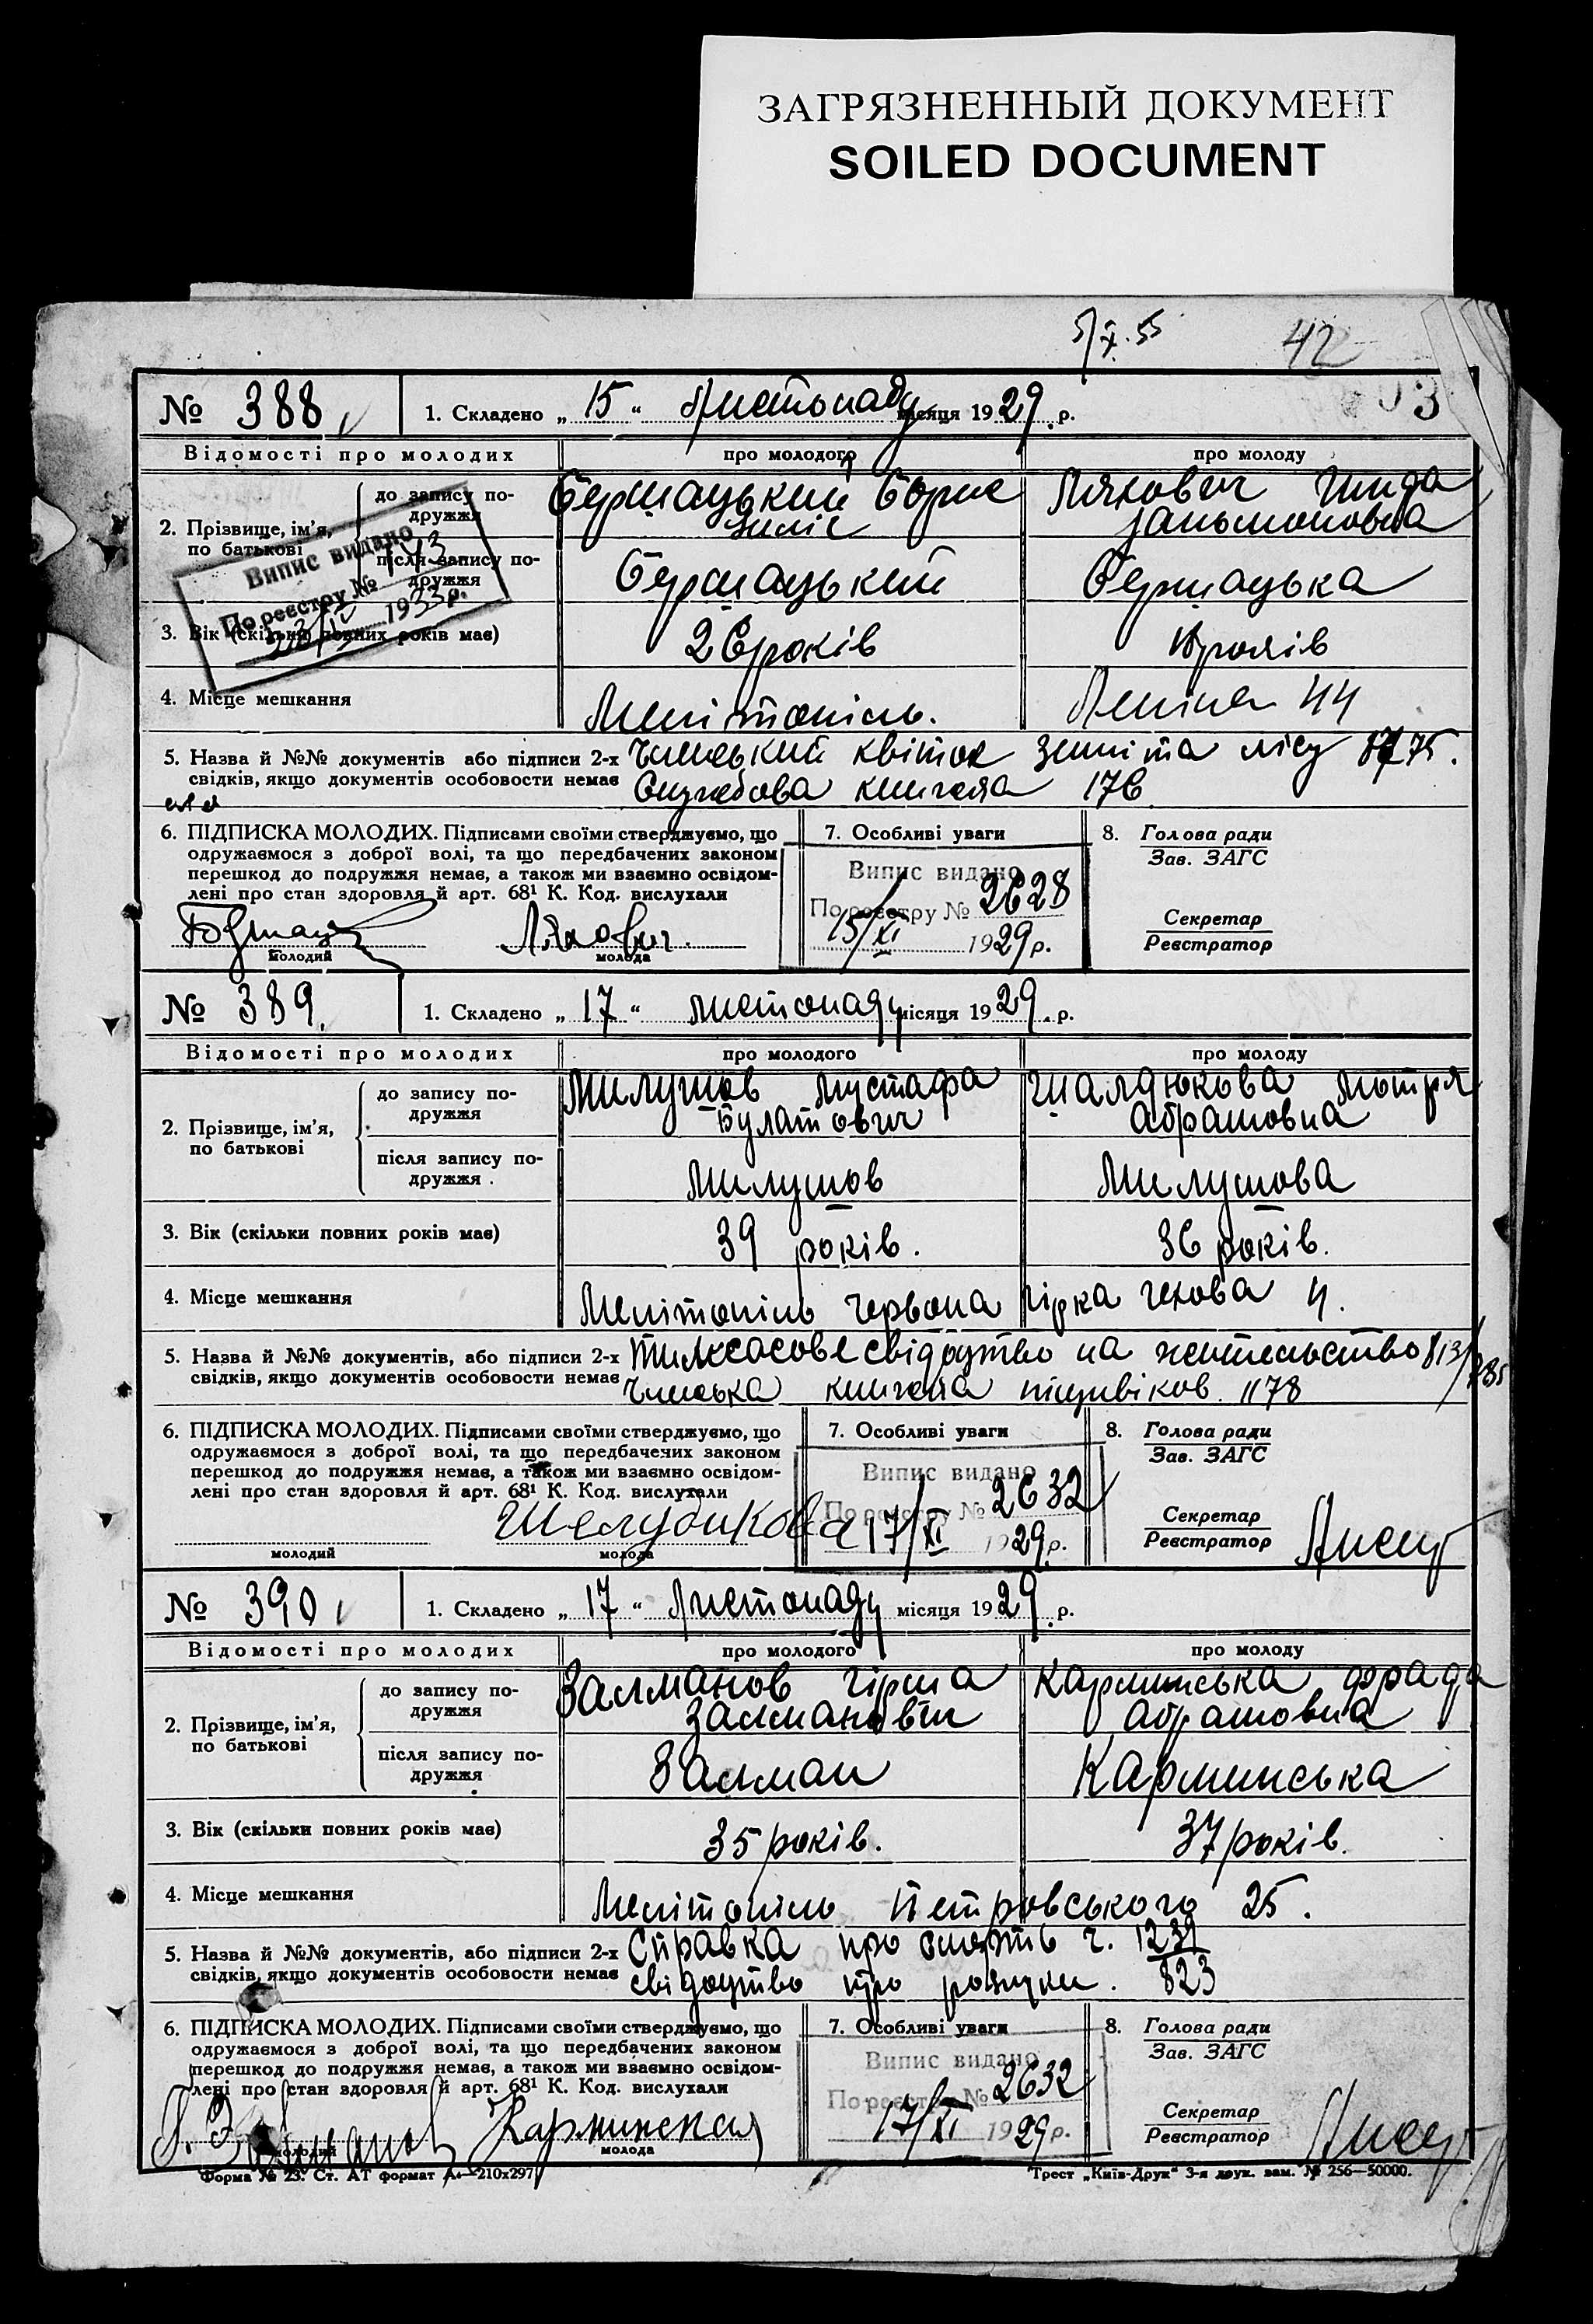 ЗАГРЯЗНЕННЫЙ ДОКУМЕНТ
SOILED DOCUMENT
5/X.55
42
3
№ 388
1. Складено „15“ Листопаду місяця 1929 р.
Відомості про молодих
про молодого
про молоду
2. Прізвище, ім’я, по батькові
до запису по-
дружжя
Борис
Ляхович
після запису по-
дружжя
Випис видано
По реєстру № 143
1933 р.
3. Вік (скільки повних років має)
26 років
років
4. Місце мешкання
Мелітопіль.
Леніна 44
5. Назва й №№ документів або підписи 2-х
свідків, якщо документів особовости немає
квіток
176
6. ПІДПИСКА МОЛОДИХ. Підписами своїми стверджуємо, що
одружаємося з доброї волі, та що передбачених законом
перешкод до подружжя немає, а також ми взаємно освідом-
лені про стан здоровля й арт. 68¹ К. Код. вислухали
Ляхович
молодий
молода
7. Особливі уваги
Випис видано
По реєстру № 2628
15/XI 1929 р.
8. Голова ради
Зав. ЗАГС
Секретар
Реєстратор
№ 389
1. Складено „17“ листопаду місяця 1929 р.
Відомості про молодих
про молодого
про молоду
2. Прізвище, ім’я,
по батькові
до запису по-
дружжя
Милушов Мустафа
Булатович
Мотря
Абрамовна
після запису по-
дружжя
Милушов
Милушова
3. Вік (скільки повних років має)
39 років.
36 років.
4. Місце мешкання
Мелітопіль Червона гірка Чехова 4.
5. Назва й №№ документів, або підписи 2-х
свідків, якщо документів особовости немає
на жительство
1178
6. ПІДПИСКА МОЛОДИХ. Підписами своїми стверджуємо, що
одружаємося з доброї волі, та що передбачених законом
перешкод до подружжя немає, а також ми взаємно освідом-
лені про стан здоровля й арт. 68¹ К. Код. вислухали
молодий
молода
7. Особливі уваги
Випис видано
По реєстру № 2632
17/XI 1929 р.
8. Голова ради
Зав. ЗАГС
Секретар
Реєстратор
№ 390
1. Складено „17“ Листопаду місяця 1929 р.
Відомості про молодих
про молодого
про молоду
2. Прізвище, ім’я,
по батькові
до запису по-
дружжя
Залманов Гірша
Залманович
Карминська Фрада
Абрамовна
після запису по-
дружжя
Залман
Карминська
3. Вік (скільки повних років має)
35 років.
37 років.
4. Місце мешкання
Мелітопіль Петровського 25.
5. Назва й №№ документів, або підписи 2-х
свідків, якщо документів особовости немає
Справка про смерть ч. 1239
свідоцтво про розлуки. 823
6. ПІДПИСКА МОЛОДИХ. Підписами своїми стверджуємо, що
одружаємося з доброї волі, та що передбачених законом
перешкод до подружжя немає, а також ми взаємно освідом-
лені про стан здоровля й арт. 68¹ К. Код. вислухали
Карминская
молодий
молода
7. Особливі уваги
Випис видано
По реєстру № 2632
17/XI 1929 р.
8. Голова ради
Зав. ЗАГС
Секретар
Реєстратор
Форма № 23. Ст. АТ формат А₄—210х297
Трест „Київ-Друк“ 3-я друк. зам. № 256—50000.